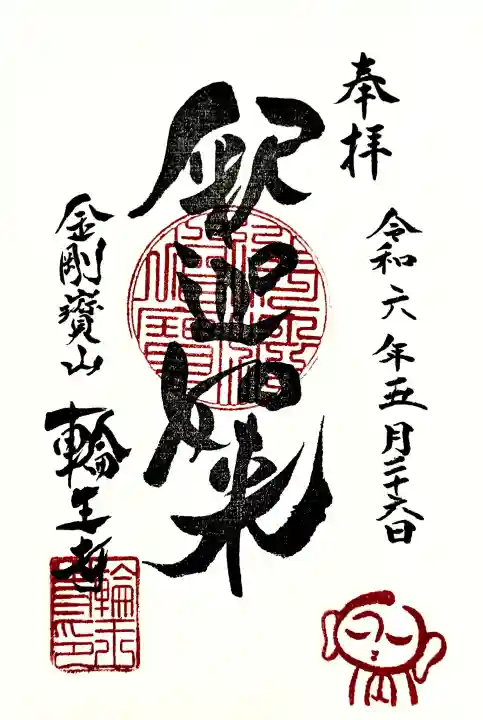 奉拝
令和六年五月二十六日
釈迦如来
金剛寶山
輪王寺